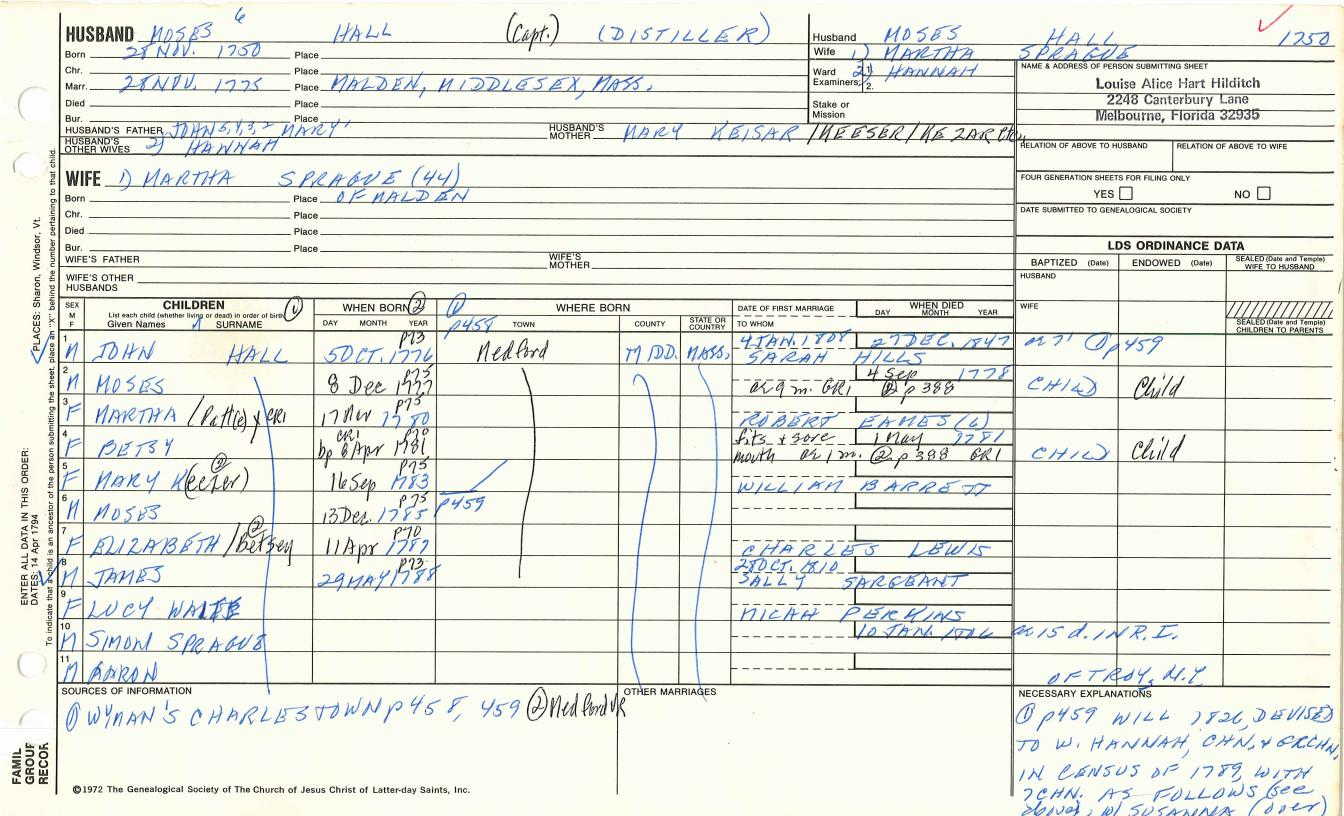 HUSBAND MOSES 6 HALL (Capt.) (DISTILLER)
Born 28 NOV. 1750 Place
Chr. Place
Marr. 28 NOV. 1775 Place MALDEN, MIDDLESEX, MASS.
Died Place
Bur. Place
HUSBAND'S FATHER JOHN 5,4,3,2 MARY 1 HUSBAND'S MOTHER MARY KEISAR / KEESER / KEZAR
HUSBAND'S OTHER WIVES 2) HANNAH
Husband MOSES HALL 1750
Wife 1) MARTHA SPRAGUE
2) HANNAH
Ward Examiners: 1.
2.
Stake or Mission
NAME & ADDRESS OF PERSON SUBMITTING SHEET
Louise Alice Hart Hilditch
2248 Canterbury Lane
Melbourne, Florida 32935
RELATION OF ABOVE TO HUSBAND RELATION OF ABOVE TO WIFE
FOUR GENERATION SHEETS FOR FILING ONLY
YES NO
DATE SUBMITTED TO GENEALOGICAL SOCIETY
WIFE 1) MARTHA SPRAGUE (44)
Born Place OF MALDEN
Chr. Place
Died Place
Bur. Place
WIFE'S FATHER WIFE'S MOTHER
WIFE'S OTHER HUSBANDS
LDS ORDINANCE DATA
BAPTIZED (Date) ENDOWED (Date) SEALED (Date and Temple) WIFE TO HUSBAND
HUSBAND
WIFE
SEALED (Date and Temple) CHILDREN TO PARENTS
SEX M F CHILDREN 1 WHEN BORN 2 1 WHERE BORN DATE OF FIRST MARRIAGE WHEN DIED
List each child (whether living or dead) in order of birth
Given Names SURNAME DAY MONTH YEAR p458 TOWN COUNTY STATE OR COUNTRY TO WHOM DAY MONTH YEAR
1 M JOHN HALL 5 OCT. 1776 p73 Medford MIDD. MASS. 4 JAN. 1808 27 DEC. 1847 ae 71 1 p459
SARAH HILLS
2 M MOSES 8 Dec 1777 p75 4 Sep 1778 CHILD Child
ae 9 m. GR1 2 p 388
3 F MARTHA / Patt(e)y GR1 17 Nov 1780 p75 ROBERT EAMES (6)
4 F BETSY GR1 bp 6 Apr 1781 p70 fits & sore 1 May 1781 CHILD Child
mouth ae 1 m. 2 p 388 GR1
5 F MARY K(eezer) 2 16 Sep 1783 p75 WILLIAM BARRETT
6 M MOSES 13 Dec. 1785 p75 p459
7 F ELIZABETH / Betsey 2 11 Apr 1787 p70 CHARLES LEWIS
8 M JAMES 29 MAY 1788 p73 28 OCT. 1810
SALLY SARGEANT
9 F LUCY WAITE MICAH PERKINS
10 M SIMON SPRAGUE 10 JAN. ae 15 d. IN R.I.
11 M AARON OF TROY, N.Y.
SOURCES OF INFORMATION
1 WYMAN'S CHARLESTOWN p 458, 459 2 Medford VR
OTHER MARRIAGES
NECESSARY EXPLANATIONS
1 p459 WILL 1826, DEVISED
TO W. HANNAH, CHN. & GRCHN.
IN CENSUS OF 1789, WITH
7 CHN. AS FOLLOWS (see
above) W/ SUSANNA (over)
©1972 The Genealogical Society of The Church of Jesus Christ of Latter-day Saints, Inc.
FAMIL
GROUP
RECOR
ENTER ALL DATA IN THIS ORDER:
DATES: 14 Apr 1794
PLACES: Sharon, Windsor, Vt.
To indicate that a child is an ancestor of the person submitting the sheet, place an "X" behind the number pertaining to that child.